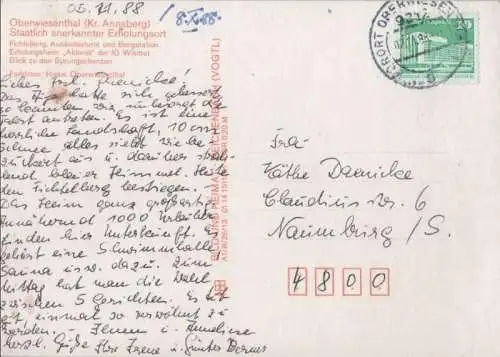 05.11.88
8.XI.88.
Oberwiesenthal (Kr. Annaberg)
Staatlich anerkannter Erholungsort
Fichtelberg, Aussichtsturm und Bergstation
Erholungsheim "Aktivist" der IG Wismut
Blick zu den Sprungschanzen
Farbfotos: Hoske, Oberwiesenthal
Liebes Frl. Daenicke!
Das hatte sich gebessert
so konnten wir unbesorgt die
Fahrt antreten. Es ist eine
herrliche Landschaft, 10 cm
Schnee alles sieht wie be-
zuckert aus u. darüber strah-
lend blauer Himmel. Heute
den Fichtelberg bestiegen.
Das Heim ganz großartig
Annähernd 1000 Urlauber
finden hier Unterkunft. Es
gehört eine Schwimmhalle
Sauna usw. dazu. Zum
Mittag hat man die Wahl
zwischen 5 Gerichten. Es tut
gut einmal so verwöhnt zu
werden. - Ihnen u. Anneliese
herzl. Grüße Ihre Irene u. Günter
BILD UND HEIMAT REICHENBACH (VOGTL)
KURORT OBERWIESENTHAL
Frau
Käthe Daenicke
Claudiusstr. 6
Naumburg / S.
4800